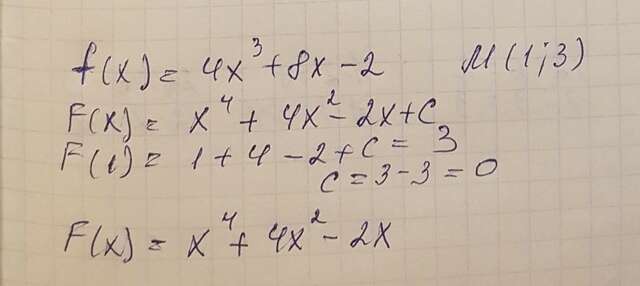 f(x) = 4x³ + 8x - 2 M(1;3)
F(x) = x⁴ + 4x² - 2x + C
F(1) = 1 + 4 - 2 + C = 3
C = 3 - 3 = 0
F(x) = x⁴ + 4x² - 2x